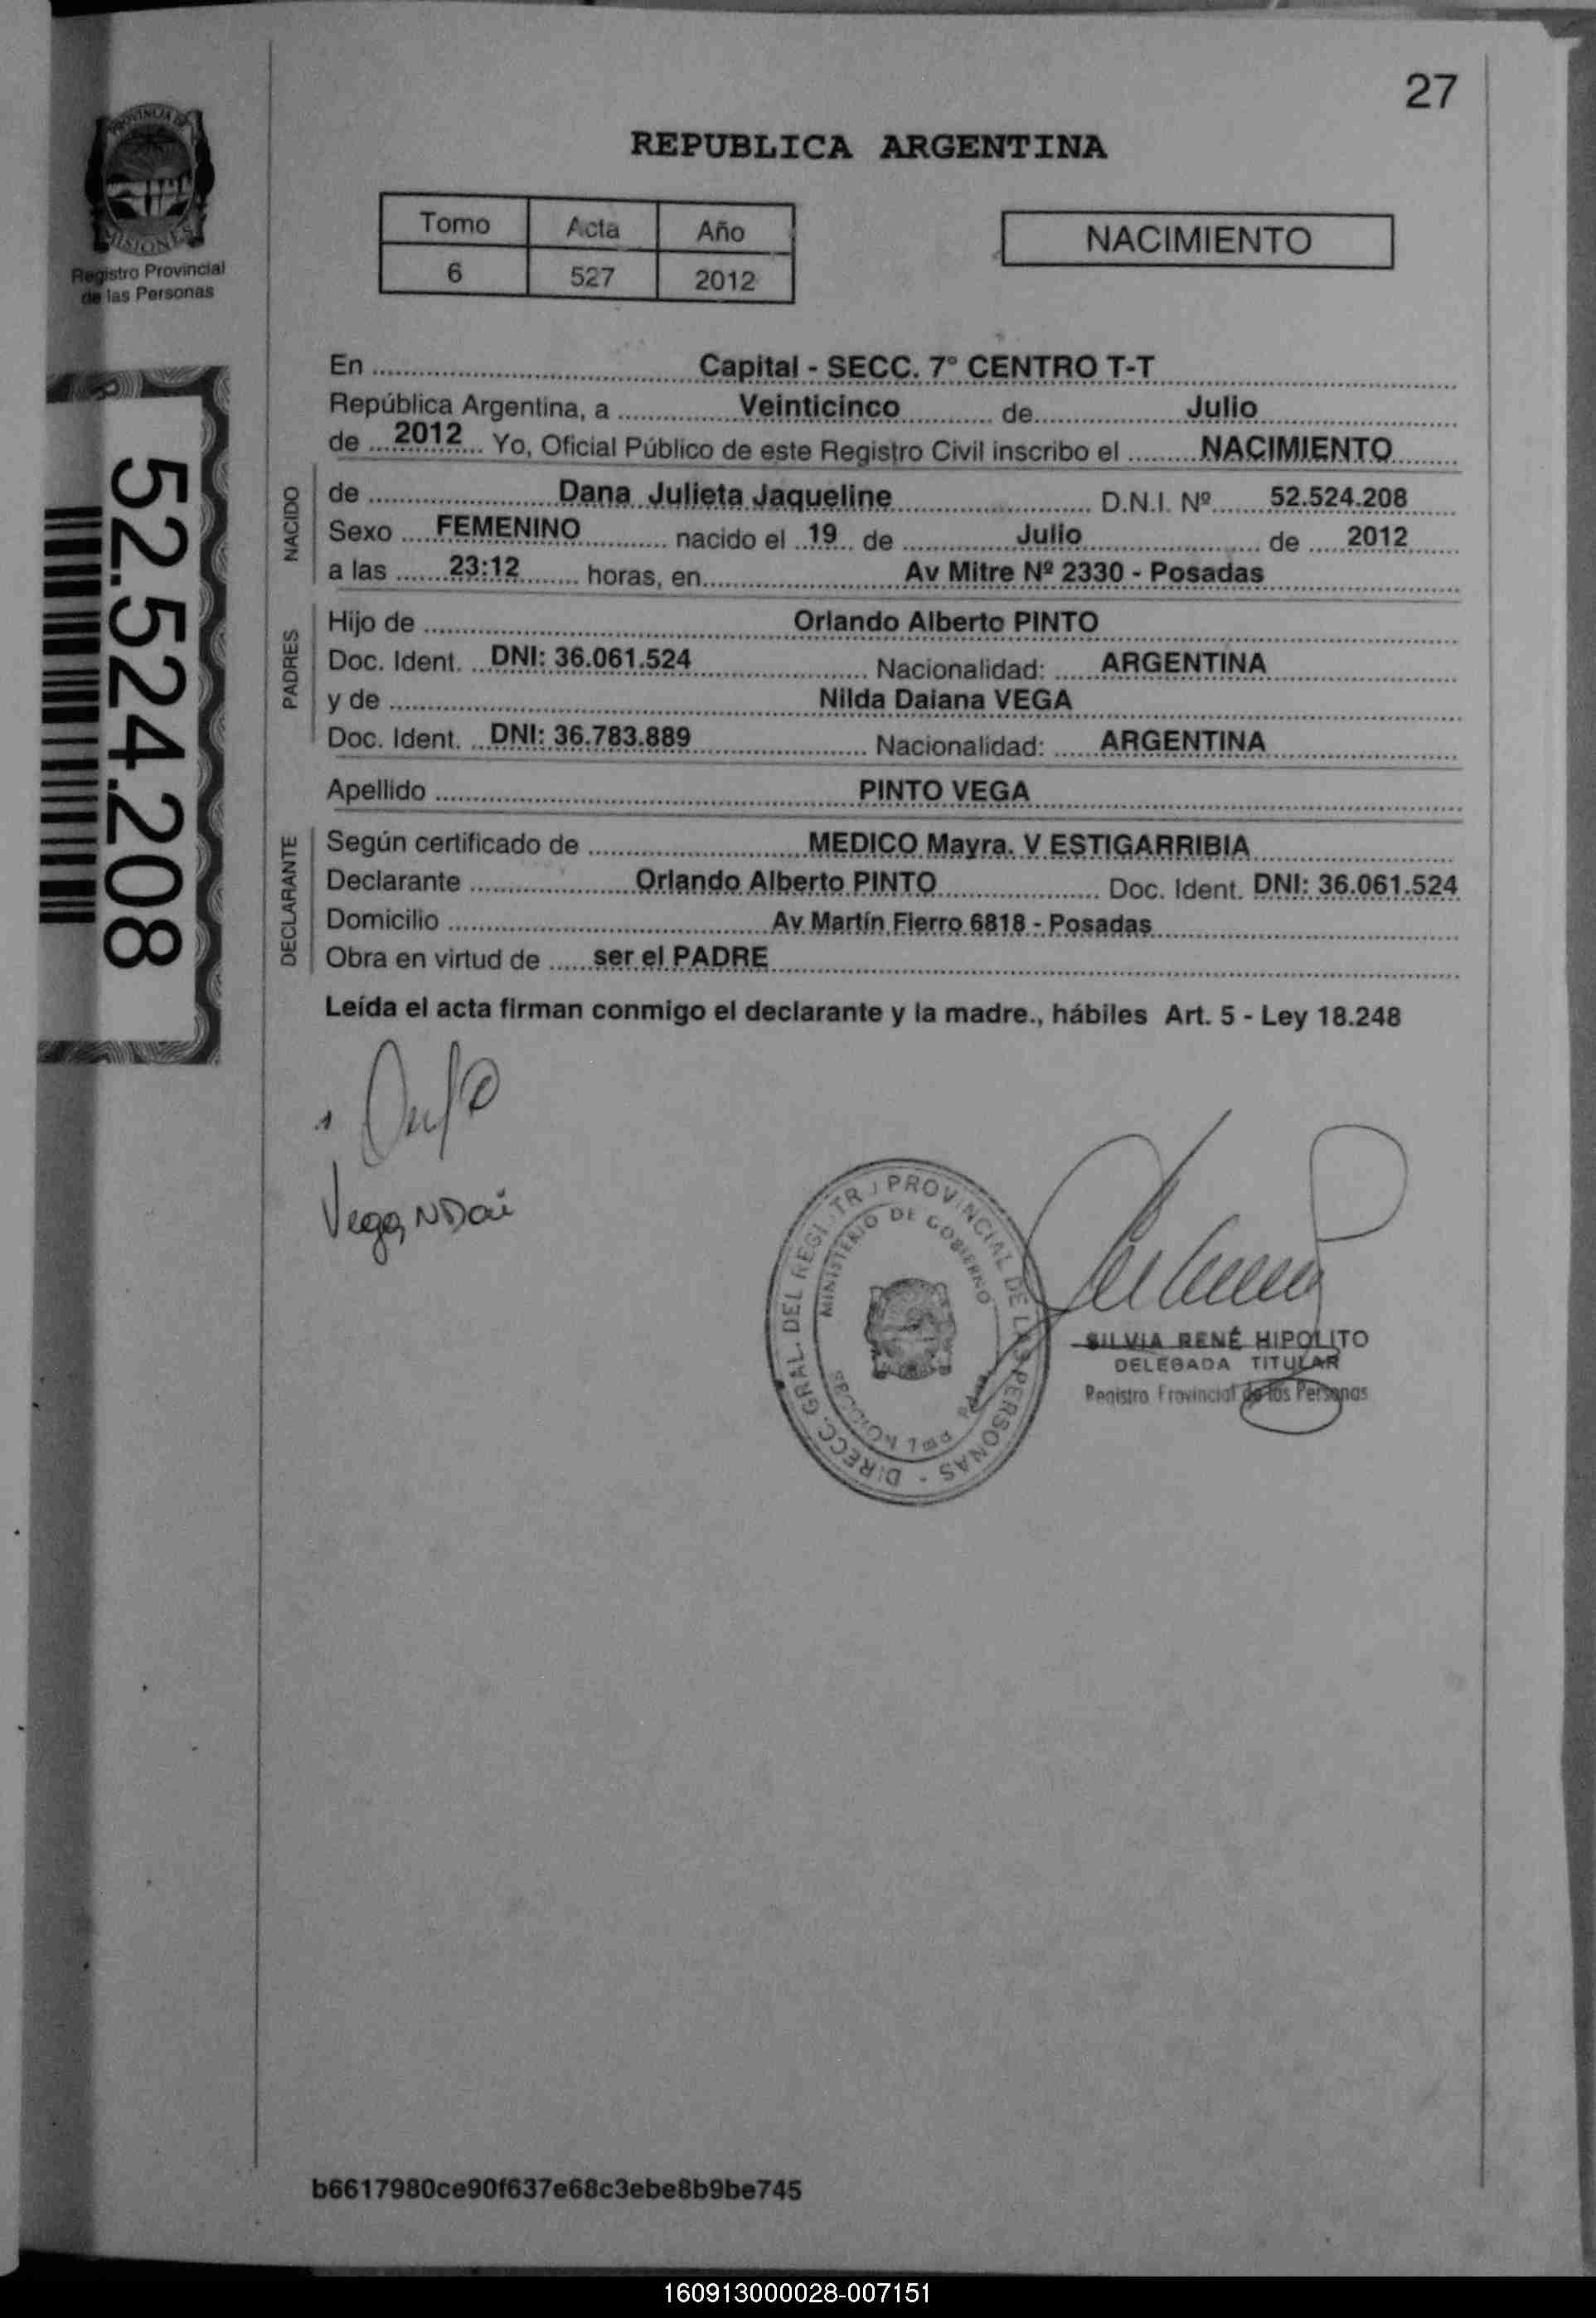 27
PROVINCIA DE
MISIONES
Registro Provincial
de las Personas
REPUBLICA ARGENTINA
Tomo Acta Año
6 527 2012
NACIMIENTO
52.524.208
En Capital - SECC. 7° CENTRO T-T
República Argentina, a Veinticinco de Julio
de 2012 Yo, Oficial Público de este Registro Civil inscribo el NACIMIENTO
NACIDO
de Dana Julieta Jaqueline D.N.I. Nº 52.524.208
Sexo FEMENINO nacido el 19 de Julio de 2012
a las 23:12 horas, en Av Mitre Nº 2330 - Posadas
PADRES
Hijo de Orlando Alberto PINTO
Doc. Ident. DNI: 36.061.524 Nacionalidad: ARGENTINA
y de Nilda Daiana VEGA
Doc. Ident. DNI: 36.783.889 Nacionalidad: ARGENTINA
Apellido PINTO VEGA
DECLARANTE
Según certificado de MEDICO Mayra. V ESTIGARRIBIA
Declarante Orlando Alberto PINTO Doc. Ident. DNI: 36.061.524
Domicilio Av Martín Fierro 6818 - Posadas
Obra en virtud de ser el PADRE
Leída el acta firman conmigo el declarante y la madre., hábiles Art. 5 - Ley 18.248
Vega
DIRECC. GRAL. DEL REGISTRO PROVINCIAL DE LAS PERSONAS -
MINISTERIO DE GOBIERNO
SILVIA RENÉ HIPOLITO
DELEGADA TITULAR
Registro Provincial de las Personas
b6617980ce90f637e68c3ebe8b9be745
160913000028-007151